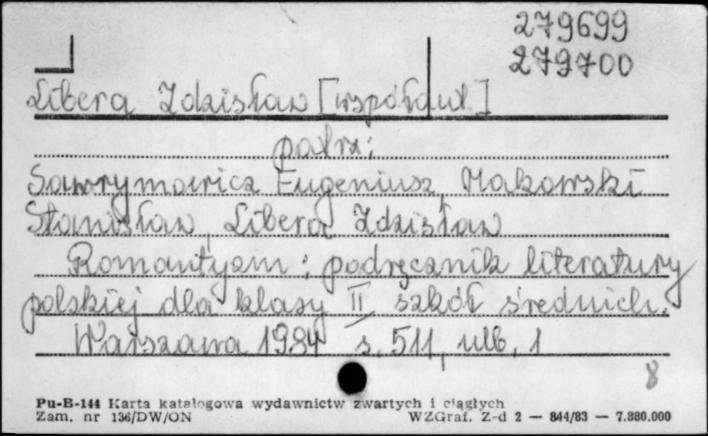 279699
279700
Libera Zdzisław [współaut.]
patrz:
Sawrymowicz Eugeniusz, Makowski
Stanisław, Libera Zdzisław
Romantyzm : podręcznik literatury
polskiej dla klasy II szkół średnich.
Warszawa 1984 s. 511, nlb. 1
8
Pu-B-144 Karta katalogowa wydawnictw zwartych i ciągłych
Zam. nr 136/DW/ON WZGraf. Z-d 2 — 844/83 — 7.880.000